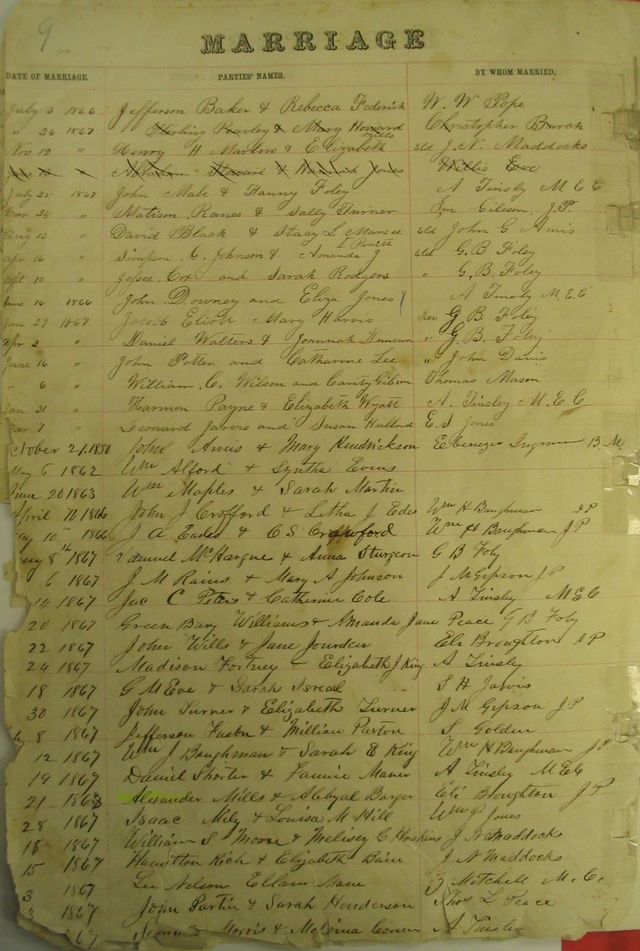 9
MARRIAGE
DATE OF MARRIAGE. PARTIES' NAMES. BY WHOM MARRIED.
July 3 1866 Jefferson Baker & Rebecca W. W Pope
" 26 1867 & Mary Howard Christopher Burch
Nov 19 " Henry H & Elizabeth Mills old J. N. Maddocks
Abraham Steward & Hannah Jones Willis
July 25 1867 John Male & Fanny Foley A Tinsly M E C
" Matison & Sally Turner Gilson, J.P.
Aug 13 " David Black & Stacy L old John G Amis
Apr 16 " Simpson G. Johnson & Amanda J old G. B Foley
Sept 10 " Jessee Cox and Sarah Rodgers " G. B. Foley
June 16 1866 John Downey and Eliza Jones A Tinsly M. E. C
Jan 27 1867 Jacob Mary Harris Rev G B. Foley
Apr 2 " Daniel Walters & " G. B. Foley
June 16 " John and Catharine Lee " John Davis
" 6 " William. C. Wilson and Gibson Thomas Mason
Jan 31 " Harmon Payne & Elizabeth Wyatt A. Tinsley M. E. C
7 " Leonard Jarvis and Susan E. S Jones
October 21, 1850 John Amis & Mary Hendrickson Ebenezer Ingram B. M.
May 6 1862 Wm Alford & Syntha
June 20 1863 Wm Maples & Sarah Martin
April 10 1866 John J Crofford & Letha J Eades Wm H Baughman J P
May 10 1866 J A Eades & C S Crawford Wm H Baughman J P
8th 1867 McHargue & Anna Sturgeon G B Foly
6 1867 J M Rains & Mary A Johnson J M Gipson J P
14 1867 Jac C Peters & Catherine Cole A Tinsly M E C
20 1867 Green Bary Williams & Amanda Jane Peace G B Foly
22 1867 John Wills & Jane Jourden Eli Broughton J P
24 1867 Madison & Elizabeth J King A Tinsly
18 1867 G M Eve & Sarah Isreal S H Jarvis
30 1867 John Turner & Elizabeth Turner J M Gipson J P
8 1867 Jefferson & Millian Parton S Golden
12 1867 Wm J Baughman & Sarah E King Wm H Baughman J P
19 1867 Daniel Shorter & Fannie A Tinsley M E C
21 1863 Alexander Mills & Abigal Barger Eli Broughton J P
28 1867 Isaac & Louisa M Hill Wm Jones
18 1867 William S Moore & Melisey C Hoskins J N Maddocks
15 1867 Hamilton & Elizabeth J N Maddocks
3 1867 Lee Nelson Ellam Mitchell M. C.
3 1867 John Partin & Sarah Henderson Thos L Peace
1867 Morris & A Tinsly